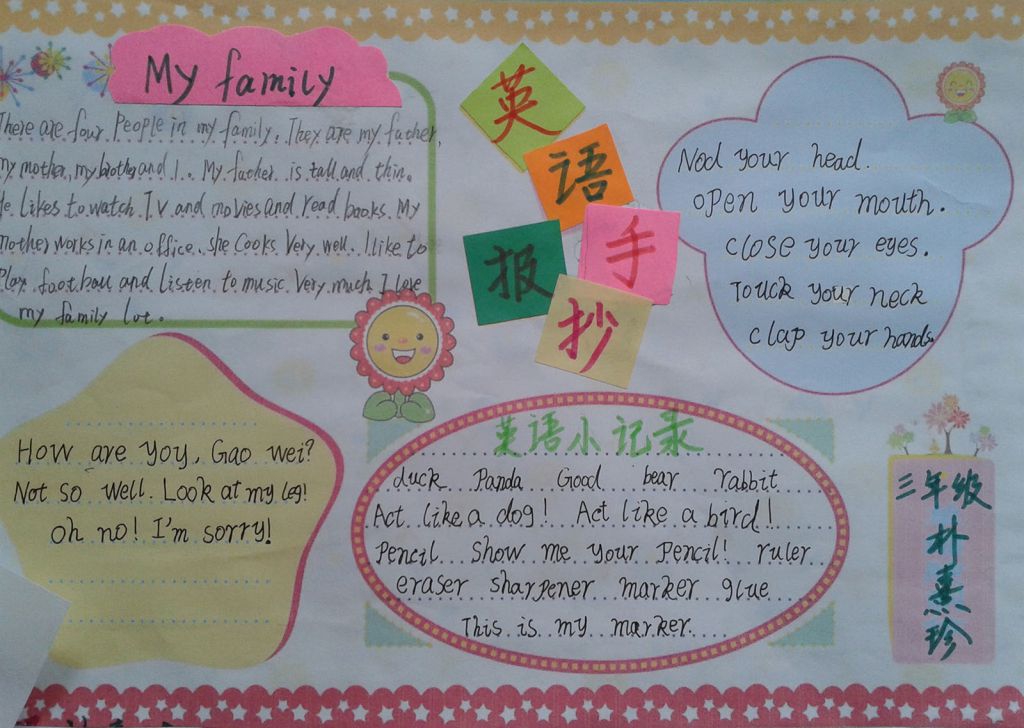 My family
There are four People in my family. They are my father,
my mother, my brother and I. My father is tall and thin.
He likes to watch TV and movies and read books. My
mother works in an office. she Cooks Very well. I like to
Play football and listen to music Very much I love
my family lot.
英
语
手
报
抄
Nod your head.
open your mouth.
close your eyes.
Touck your neck
clap your hands.
How are yoy, Gao wei?
Not so well. Look at my leg!
oh no! I'm sorry!
英语小记录
duck Panda Good bear rabbit
Act like a dog! Act like a bird!
Pencil show me your Pencil! ruler
eraser sharpener marker glue
This is my marker.
三年级
朴
熹
珍